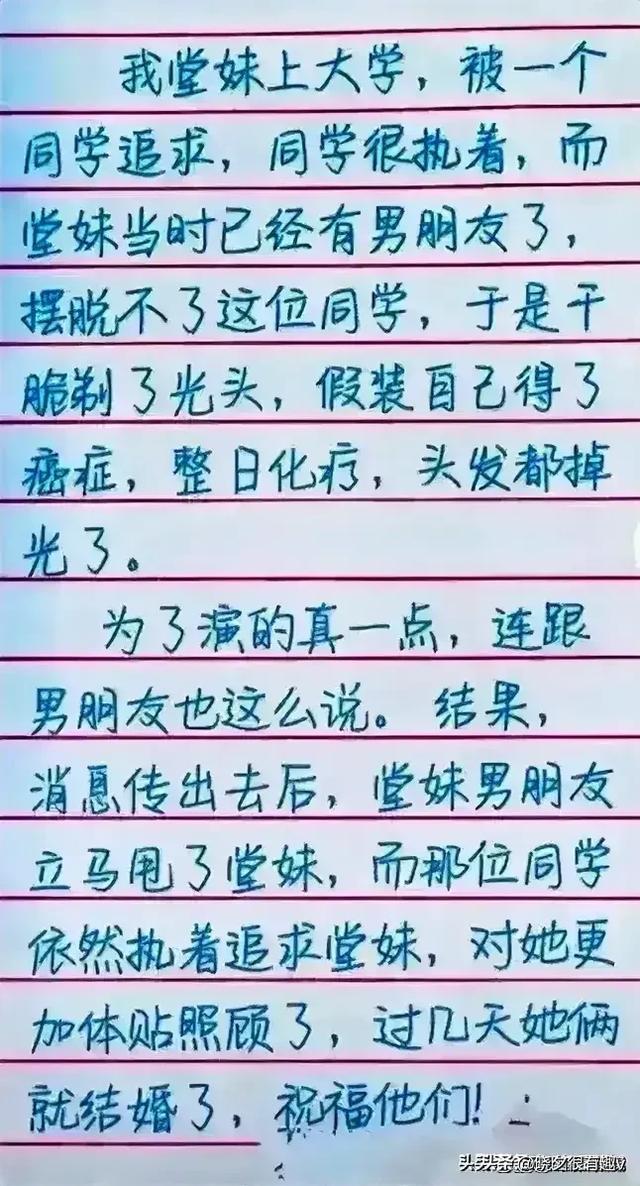 我堂妹上大学，被一个
同学追求，同学很执着，而
堂妹当时已经有男朋友了，
摆脱不了这位同学，于是干
脆剃了光头，假装自己得了
癌症，整日化疗，头发都掉
光了。
为了演的真一点，连跟
男朋友也这么说。结果，
消息传出去后，堂妹男朋友
立马甩了堂妹，而那位同学
依然执着追求堂妹，对她更
加体贴照顾了，过几天她俩
就结婚了，祝福他们！